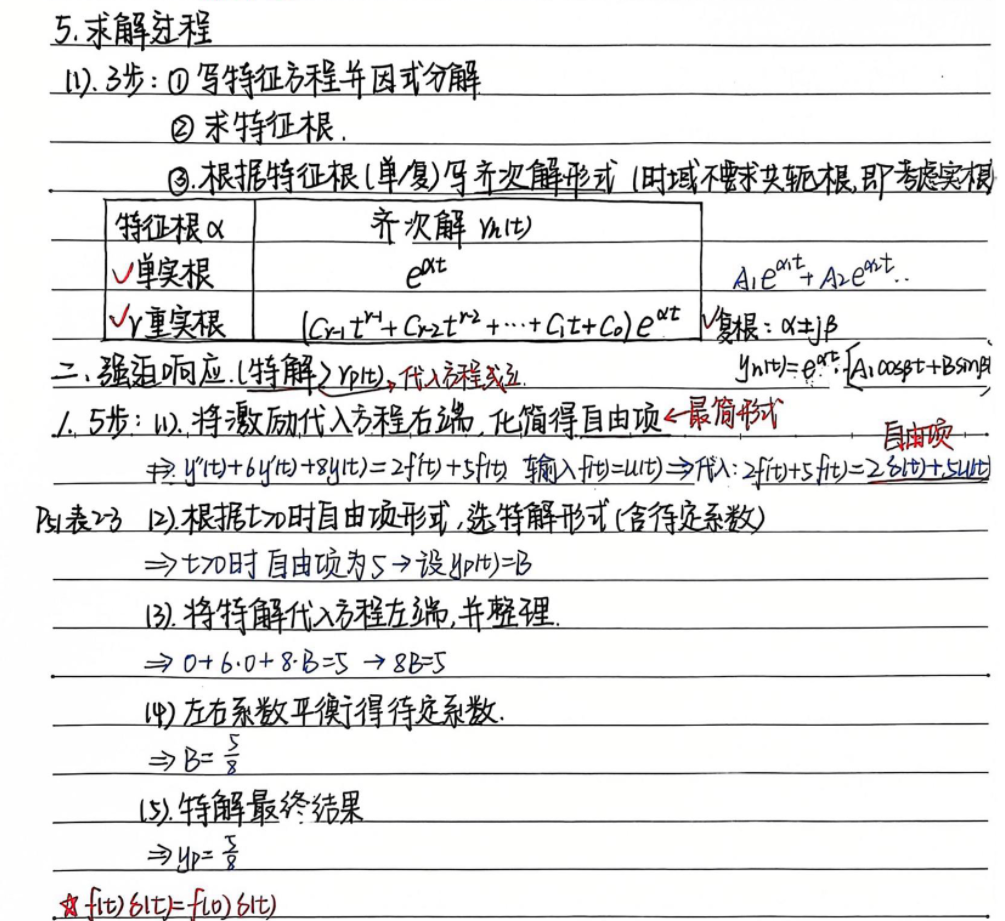 5.求解过程
(1).3步:①写特征方程并因式分解
②求特征根.
③.根据特征根(单/复)写齐次解形式(时域不要求共轭根,即考虑实根)
特征根α 齐次解 yh(t)
✓单实根 e^αt A₁e^α₁t + A₂e^α₂t..
✓r重实根 (Cr-1 t^r-1 + Cr-2 t^r-2 + ⋯ + C₁t + C₀) e^αt ✓复根: α±jβ
yh(t)=e^αt·[A₁cosβt+Bsinβt
二、强迫响应.(特解) yp(t),代入方程成立.
1. 5步:(1).将激励代入方程右端,化简得自由项←最简形式
自由项
⇒ y''(t)+6y'(t)+8y(t)=2f'(t)+5f(t) 输入f(t)=u(t)⇒代入:2f'(t)+5f(t)=2δ(t)+5u(t)
P51表2-3 (2).根据t>0时自由项形式,选特解形式(含待定系数)
⇒t>0时 自由项为5→设yp(t)=B
(3).将特解代入方程左端,并整理.
⇒ 0+6·0+8·B=5 → 8B=5
(4)左右系数平衡得待定系数.
⇒B=5/8
(5).特解最终结果
⇒yp=5/8
☆f(t)δ(t)=f(0)δ(t)